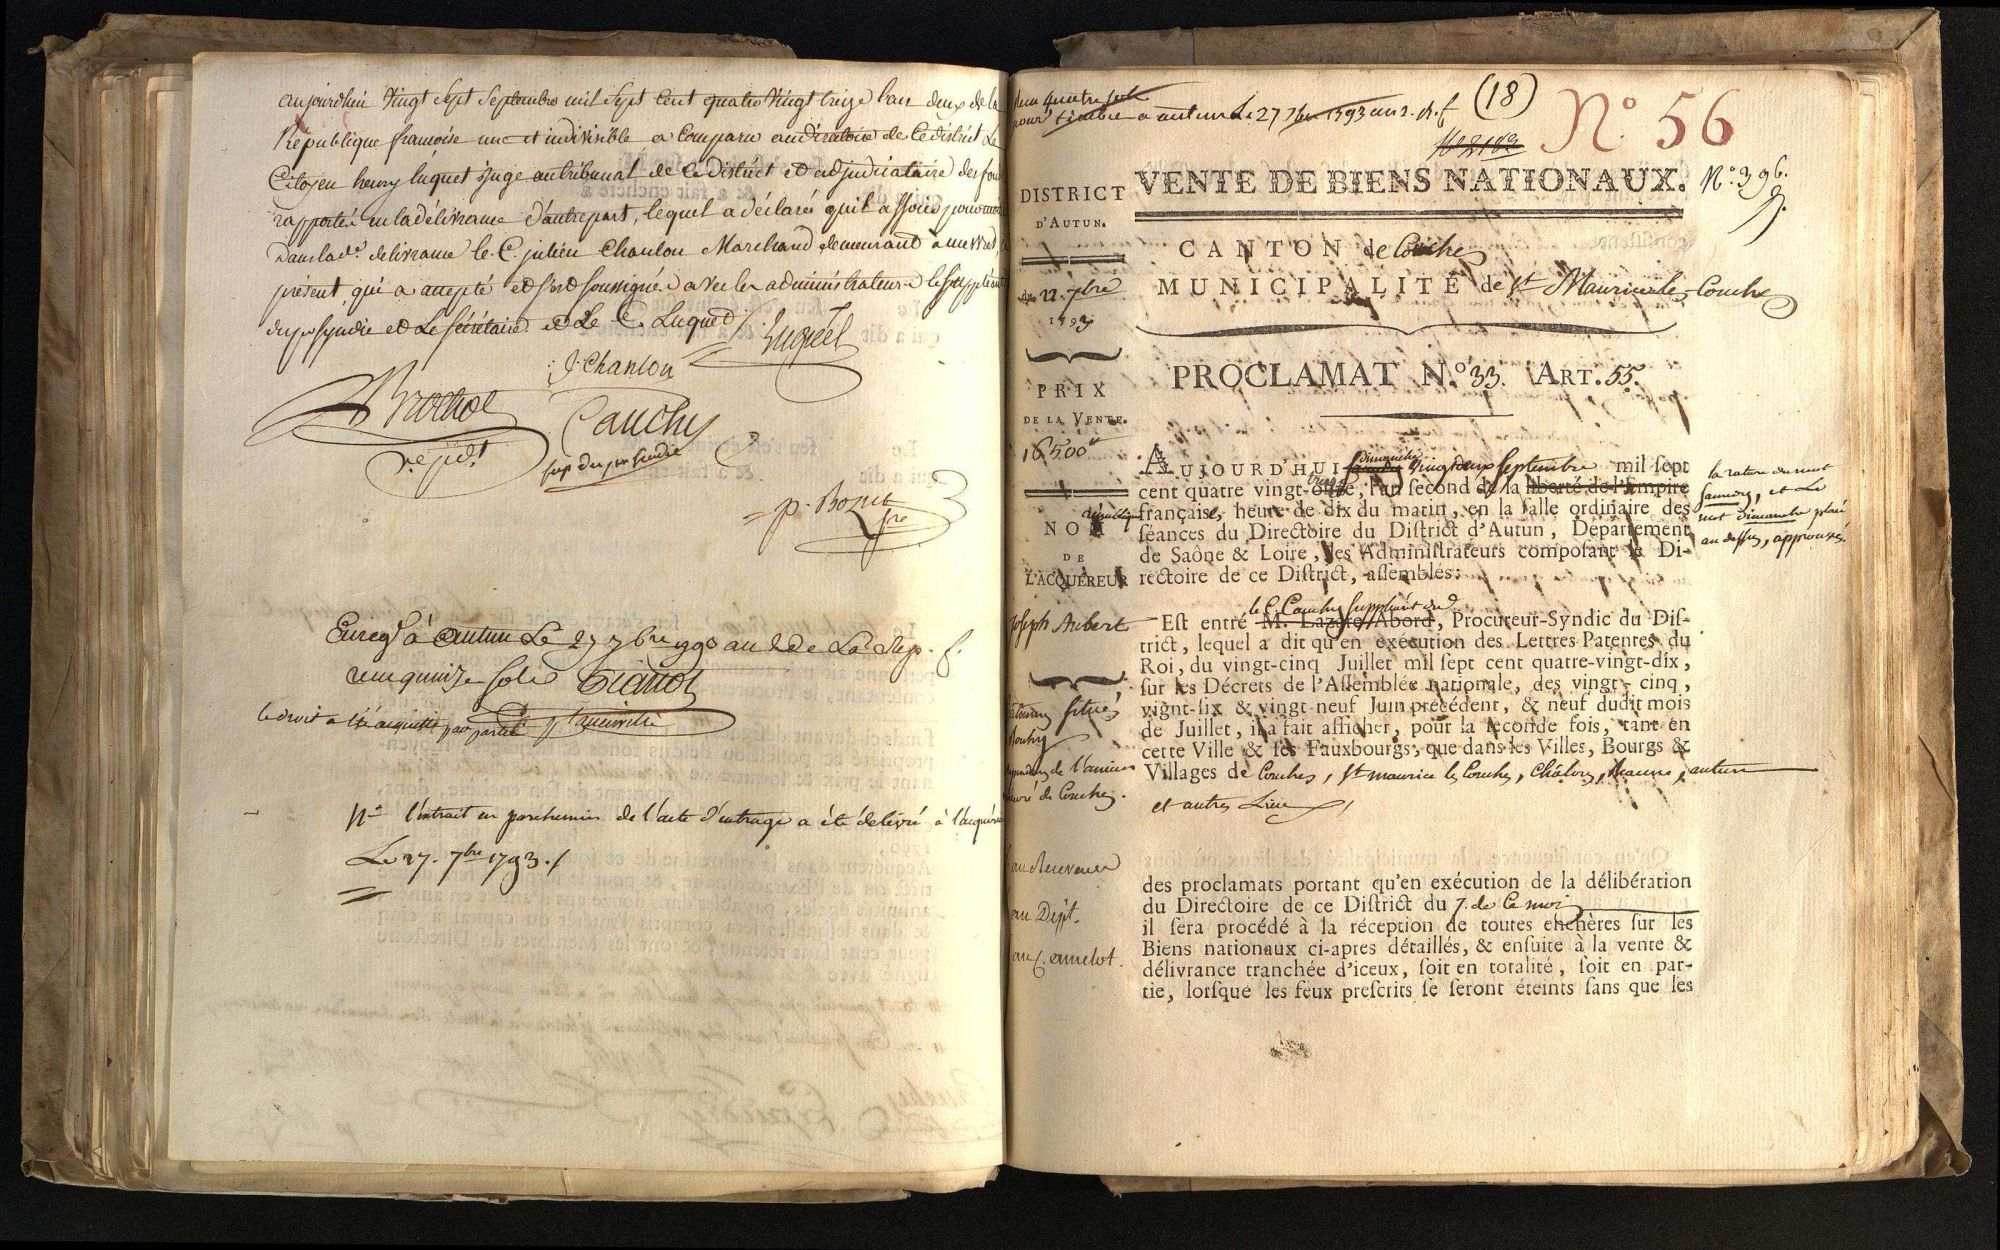 aujourdhui vingt sept septembre mil sept cent quatre vingt treize l'an deux de la
République francoise une et indivisible a comparu au directoire de ce district Le
Citoyen henry luquet juge au tribunal de ce district et adjudicataire des fonds
rapportés en la délivrance d'autre part, lequel a déclaré qu'il associe pour moitié
dans lad.e délivrance le C. julien Chanlon Marchand demeurant à
présent, qui a accepté et s'est soussigné avec les administrateurs le suppléant
du p.r syndic et Le secrétaire et Le C. Luquet /. Luquet
J. Chanlon
Cauchy
sup du pr sindic
p. Bozet
Enreg.é à autun Le 27 7bre 1793 an 2 de La Rep. f.
reçu quinze sols
N.a l'extrait en parchemin de l'acte d'entrage a été délivré à l'acquéreur
Le 27. 7bre 1793. /
(18)
N.o 56
pour timbre a autun Le 27 7bre 1793 an 2. R. f
VENTE DE BIENS NATIONAUX.
N.o 396.
DISTRICT
D'AUTUN.
CANTON de Couches
MUNICIPALITÉ de St Maurice les Couches
du 22. 7bre
1793
PROCLAMAT N.o 33. ART. 55.
PRIX
DE LA VENTE.
16500tt
AUJOURD'HUI samedy dimanche vingt deux septembre mil sept
cent quatre vingt-onze, treize l'an second de la liberté de l'Empire
république française, heure de dix du matin, en la salle ordinaire des
séances du Directoire du District d'Autun, Département
de Saône & Loire, les Administrateurs composant le Di-
rectoire de ce District, assemblés:
la rature du mot
samedy, et le
mot dimanche placé
au dessus, approuvés.
NOM
DE
L'ACQUÉREUR
Joseph Aubert
le C. Cauchy suppléant du
Est entré M. Lazare Abord, Procureur-Syndic du Dis-
trict, lequel a dit qu'en exécution des Lettres-Patentes du
Roi, du vingt-cinq Juillet mil sept cent quatre-vingt-dix,
sur les Décrets de l'Assemblée nationale, des vingt-cinq,
vignt-six & vingt-neuf Juin précédent, & neuf dudit mois
de Juillet, il a fait afficher, pour la seconde fois, tant en
cette Ville & ses Fauxbourgs, que dans les Villes, Bourgs &
Villages de Couches, St maurice les Couches, Châlon, Beaune, autun
et autres Lieux /
situés
de l'ancien
de Couches.
au Receveur
au Dépt.
au C. amelot.
des proclamats portant qu'en exécution de la délibération
du Directoire de ce District du 7. de ce mois
il sera procédé à la réception de toutes enchères sur les
Biens nationaux ci-apres détaillés, & ensuite à la vente &
délivrance tranchée d'iceux, soit en totalité, soit en par-
tie, lorsque les feux prescrits se seront éteints sans que les